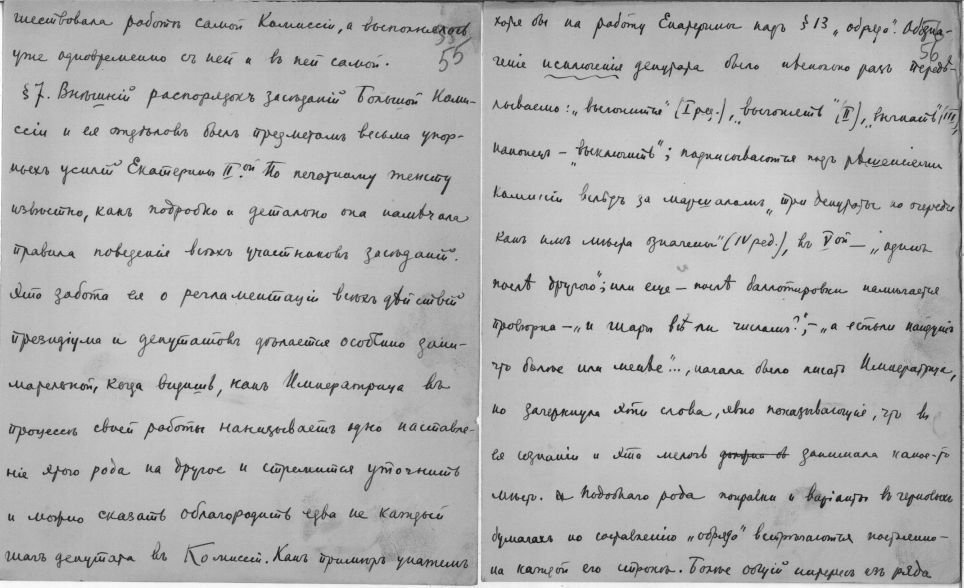 шествовала работъ самой Комиссіи, а выполнялось
55
уже одновременно съ ней и въ ней самой.
§ 7. Внѣшній распорядокъ засѣданій Большой Комис-
сіи и ея отдѣловъ былъ предметомъ весьма упор-
ныхъ усилій Екатерины II-ой. По печатному тексту
извѣстно, какъ подробно и детально она намѣчала
правила поведенія всѣхъ участниковъ засѣданій.
Эта забота ея о регламентаціи всѣхъ дѣйствій
президіума и депутатовъ дѣлается особенно зани-
мательной, когда видишь, какъ Императрица въ
процессѣ своей работы нанизываетъ одно наставле-
ніе этого рода на другое и стремится уточнить
и можно сказать облагородить едва не каждый
шагъ депутата въ Комиссіи. Какъ примѣръ укажемъ
хотя бы на работу Екатерины надъ § 13 „обряда". Обозна-
56
ченіе исключенія депутата было нѣсколько разъ передѣ-
лываемо: „выгонитъ" (I ред.), „выгонять" (II), „выгнать" (III),
наконецъ – „выключить"; подписываются подъ рѣшеніями
Комиссіи вслѣдъ за маршаломъ „три депутаты по очереди
какъ имъ мѣста означены" (IV ред.), въ V ой – „одинъ
послѣ другого"; или еще – послѣ баллотировки намѣчается
провѣрка – „и шары всѣ ли числомъ?"; – „а естьли найдутъ
что болѣе или менѣе"..., начала было писать Императрица,
но зачеркнула эти слова, явно показывающія, что въ
ея сознаніи и эта мелочь занимала какое-то
мѣсто. Подобнаго рода поправки и варіанты въ черновыхъ
бумагахъ по составленію „обряда" встрѣчаются постоянно –
на каждой его строкѣ. Болѣе общій интересъ изъ ряда